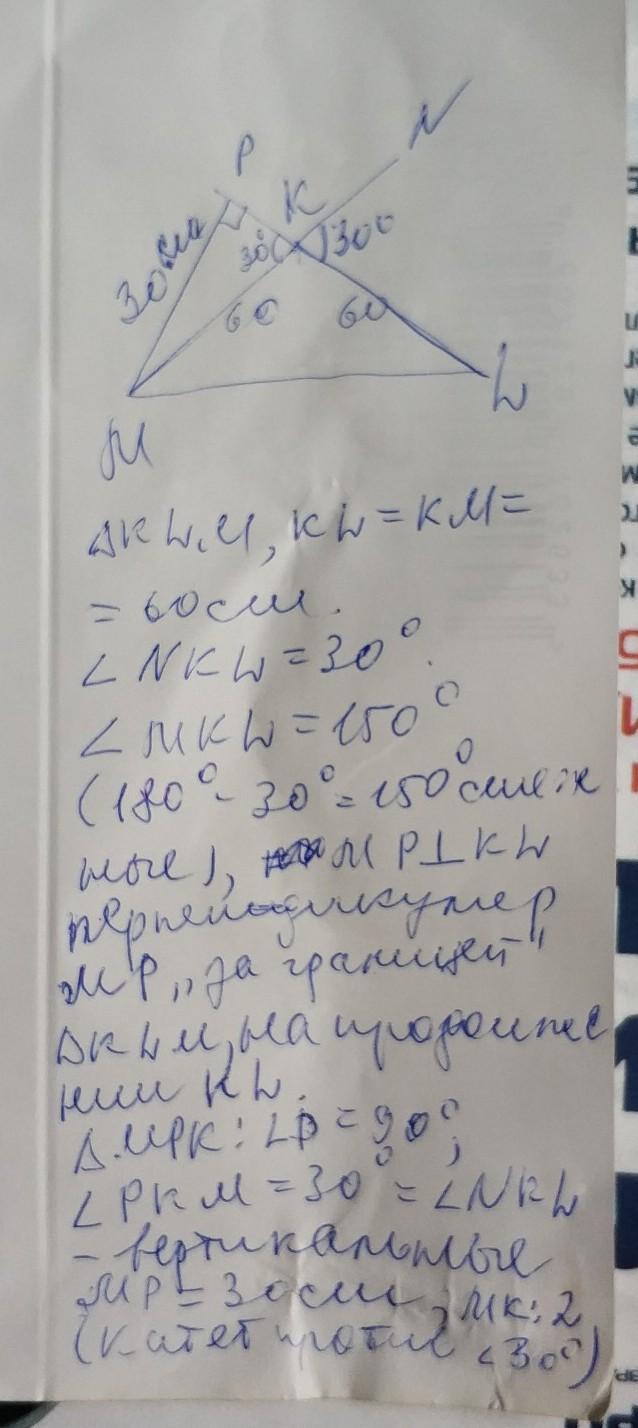 P
N
K
30 см
30°
30°
60
60
M
L
ΔKLM, KL = KM =
= 60 см.
∠ NKL = 30°.
∠ MKL = 150°
(180° - 30° = 150° смеж
ные), MP⊥KL
перпендикуляр
MP „за границей"
ΔKLM, на продолже
нии KL.
Δ MPK: ∠P = 90°,
∠ PKM = 30° = ∠NKL
- вертикальные
MP = 30 см, MK:2
(катет против ∠30°)